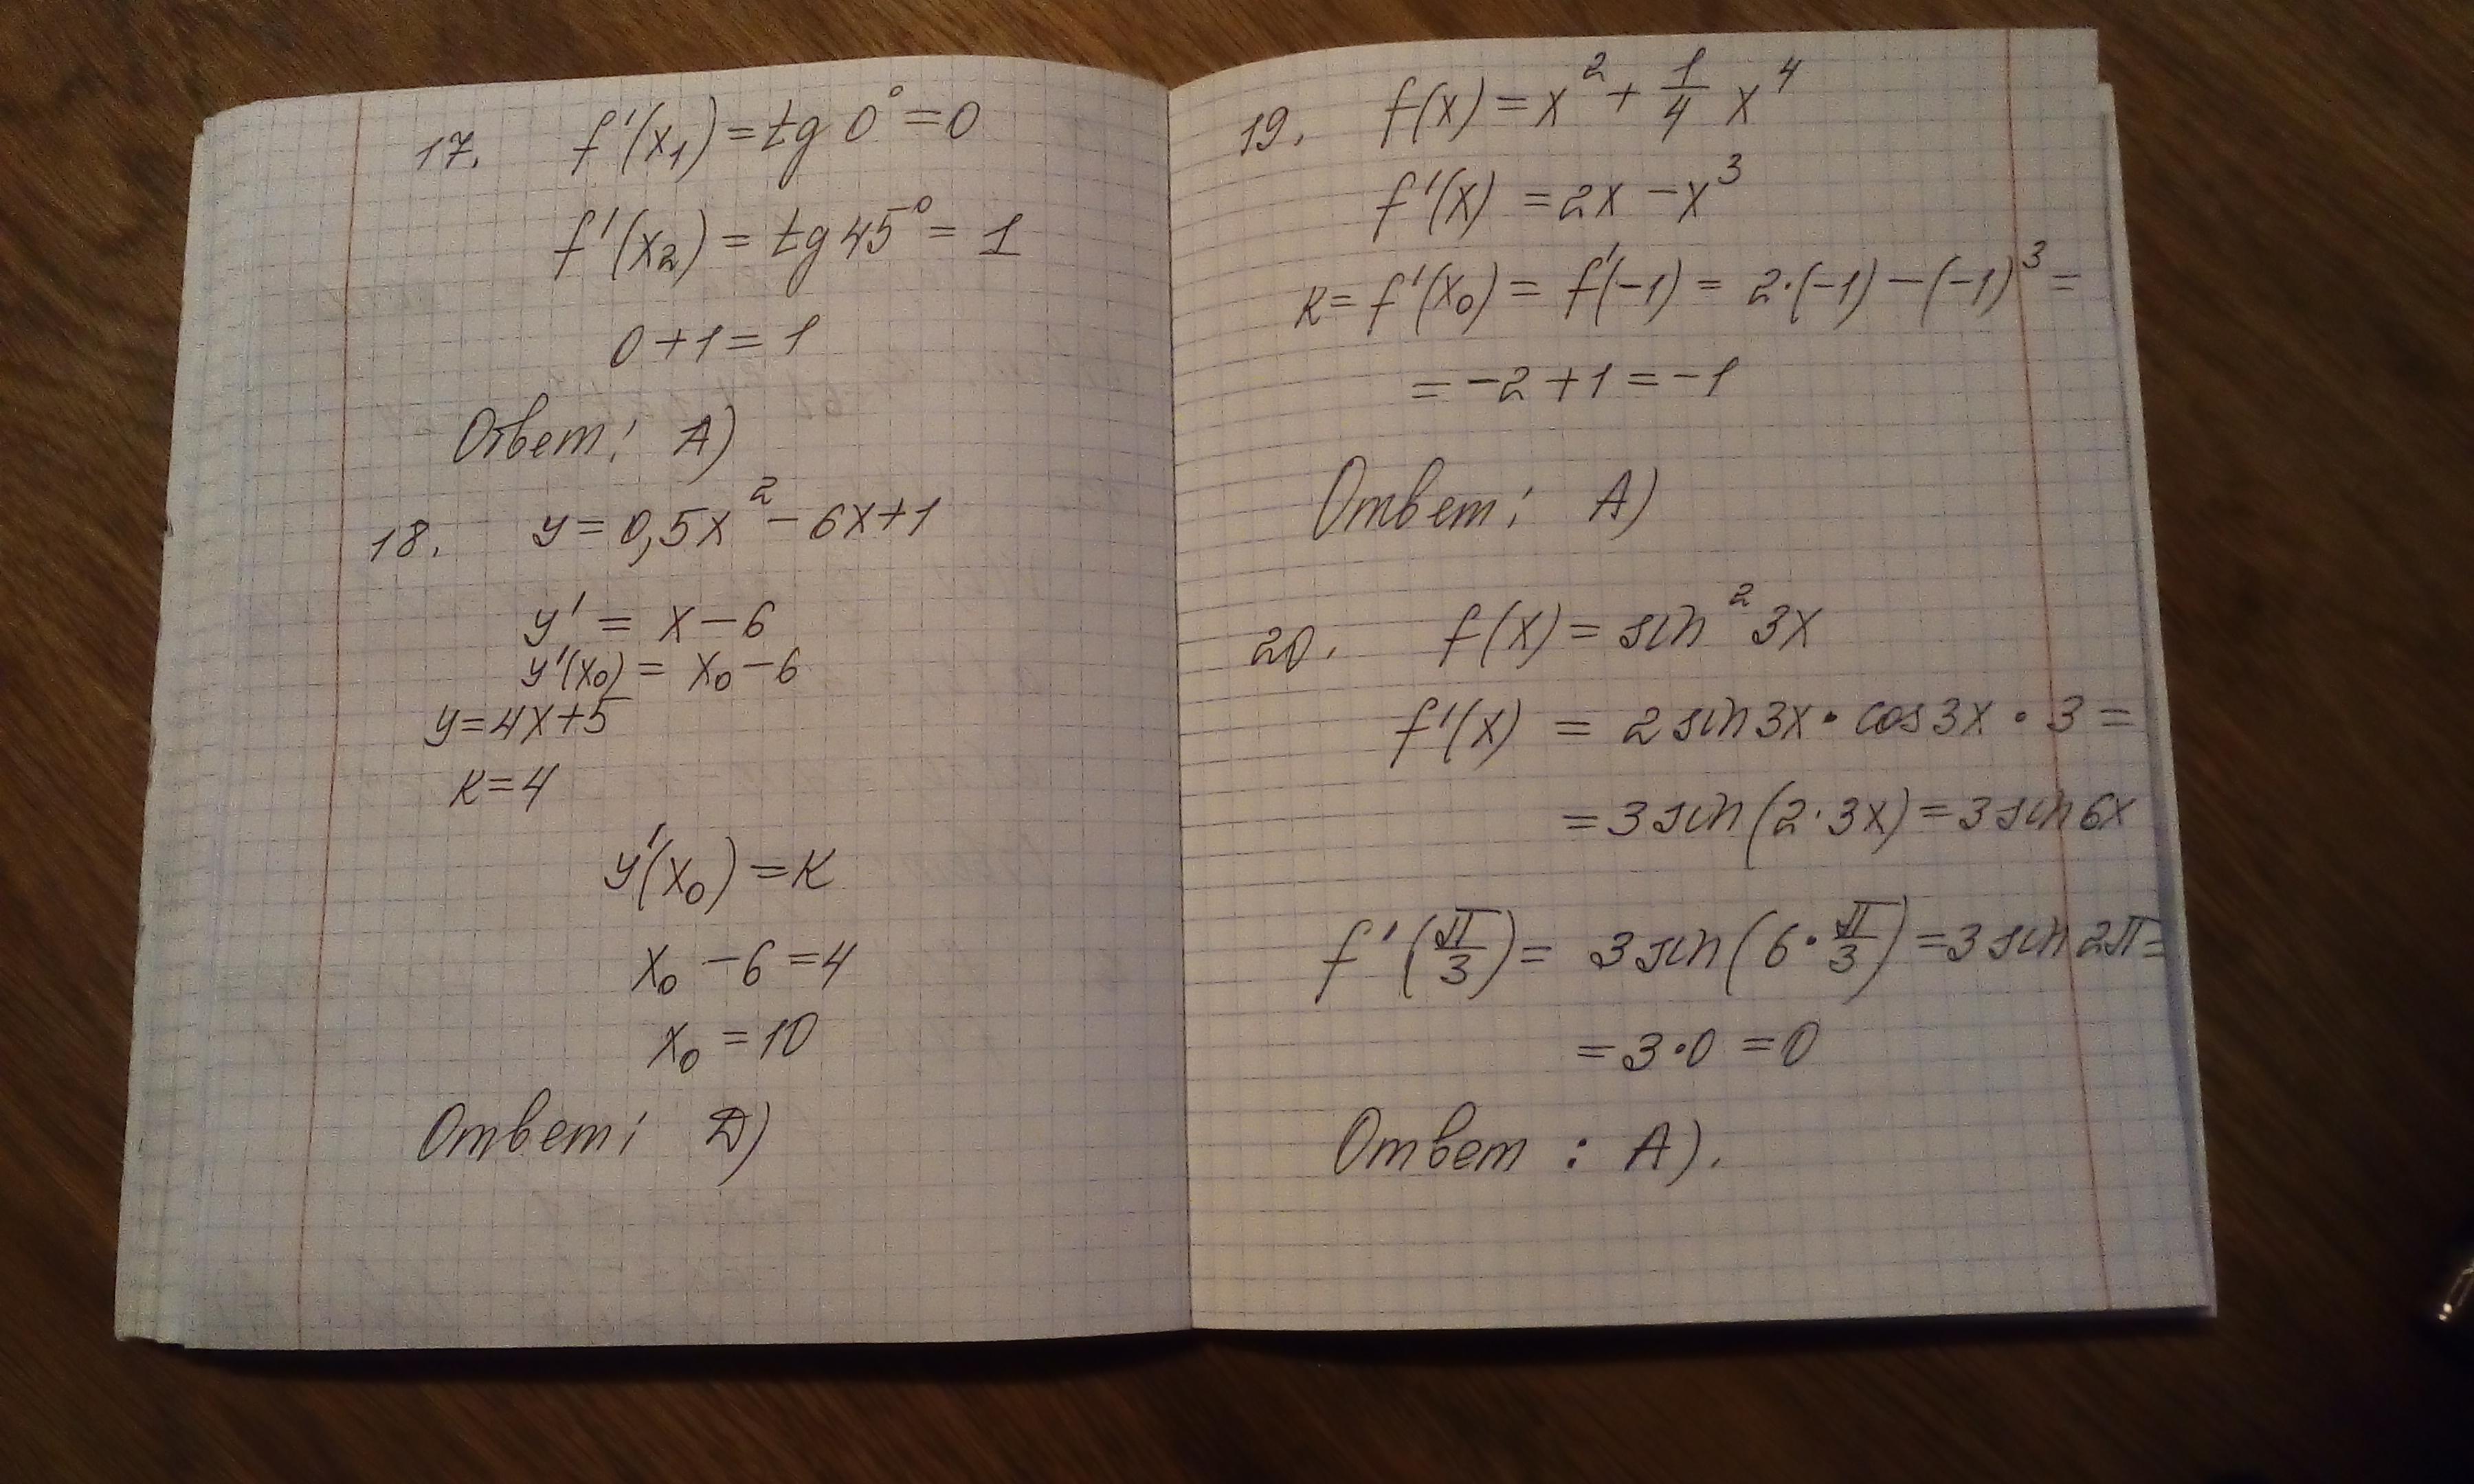 17. f'(x₁) = tg 0° = 0
f'(x₂) = tg 45° = 1
0 + 1 = 1
Ответ: А)
18. y = 0,5x² - 6x + 1
y' = x - 6
y'(x₀) = x₀ - 6
y = 4x + 5
k = 4
y'(x₀) = k
x₀ - 6 = 4
x₀ = 10
Ответ: D)
19. f(x) = x² + 1/4 x⁴
f'(x) = 2x - x³
k = f'(x₀) = f'(-1) = 2·(-1) - (-1)³ =
= -2 + 1 = -1
Ответ: А)
20. f(x) = sin² 3x
f'(x) = 2 sin 3x · cos 3x · 3 =
= 3 sin (2·3x) = 3 sin 6x
f'(π/3) = 3 sin (6 · π/3) = 3 sin 2π =
= 3·0 = 0
Ответ: А).